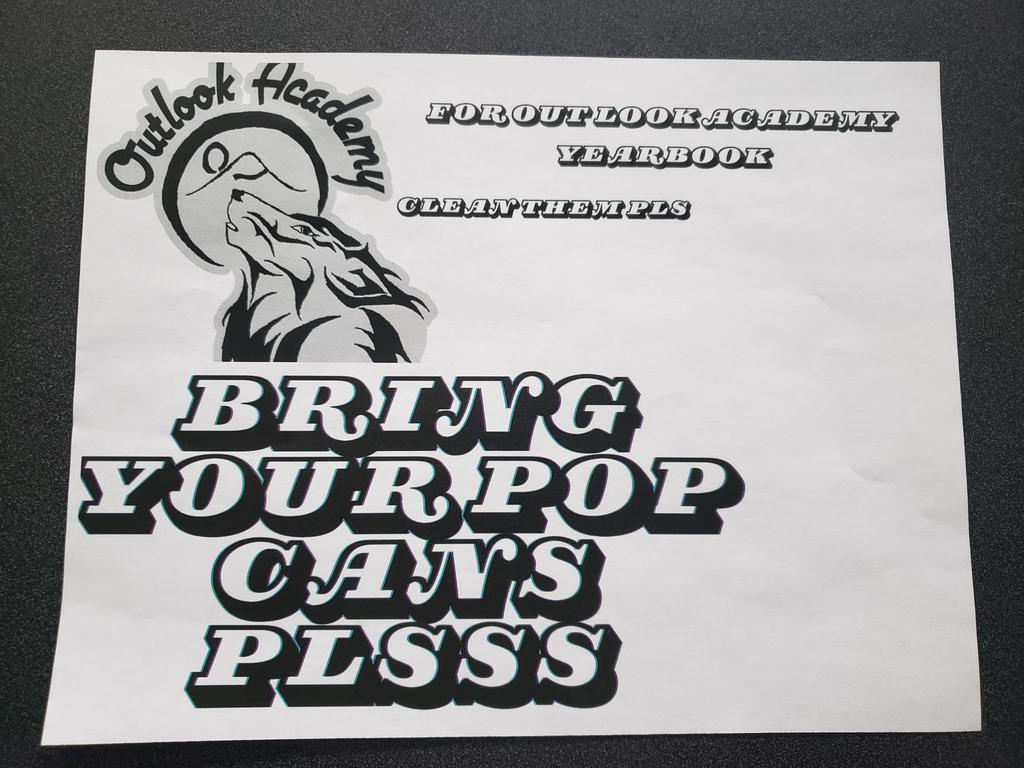 Outlook Academy
FOR OUT LOOK ACADEMY
YEARBOOK
CLEAN THEM PLS
BRING
YOUR POP
CANS
PLSSS